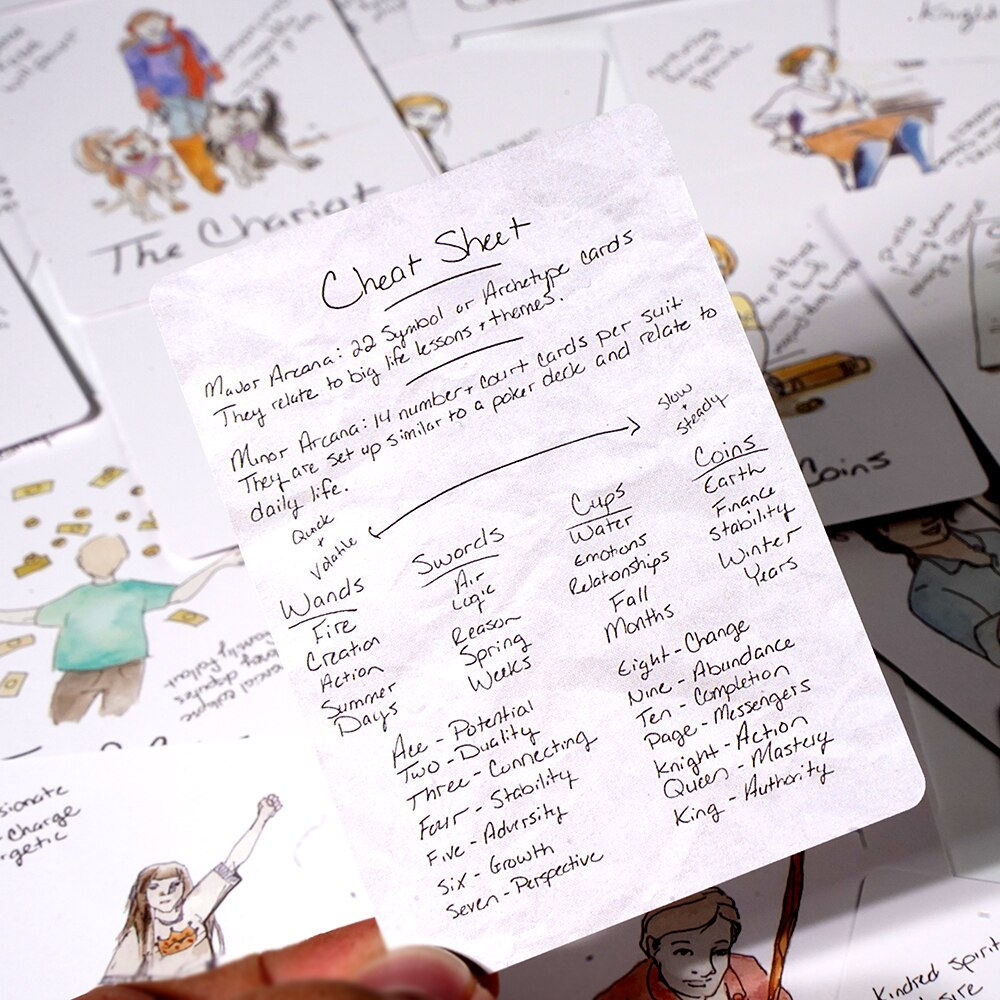 The Chariot
Knight
Coins
Cheat Sheet
Major Arcana: 22 Symbol or Archetype cards
They relate to big life lessons + themes.
Minor Arcana: 14 number + court cards per suit
They are set up similar to a poker deck and relate to
daily life.
Quick
+
Volatile
Slow
+
Steady
Wands
Fire
Creation
Action
Summer
Days
Swords
Air
Logic
Reason
Spring
Weeks
Cups
Water
Emotions
Relationships
Fall
Months
Coins
Earth
Finance
Stability
Winter
Years
Ace - Potential
Two - Duality
Three - Connecting
Four - Stability
Five - Adversity
Six - Growth
Seven - Perspective
Eight - Change
Nine - Abundance
Ten - Completion
Page - Messengers
Knight - Action
Queen - Mastery
King - Authority
sionate
charge
rgetic
Kindred Spirit